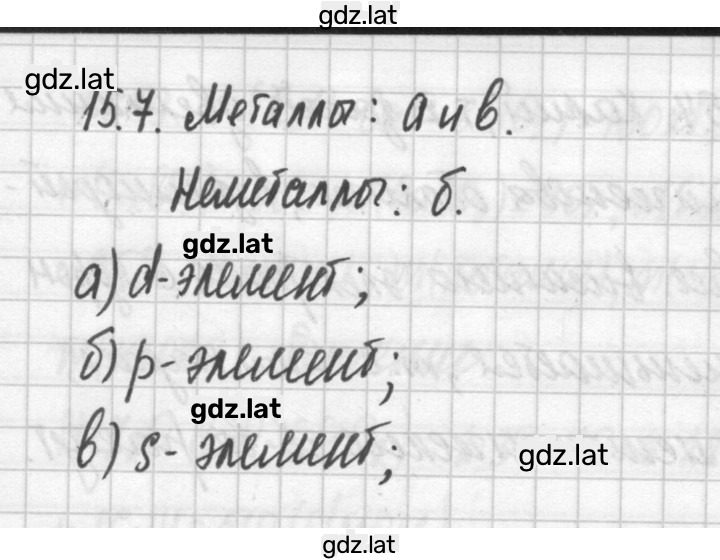 gdz.lat
gdz.lat
15.7. Металлы: а и в.
Неметаллы: б.
gdz.lat
а) d-элемент;
б) p-элемент;
gdz.lat
в) s-элемент;
gdz.lat
gdz.lat